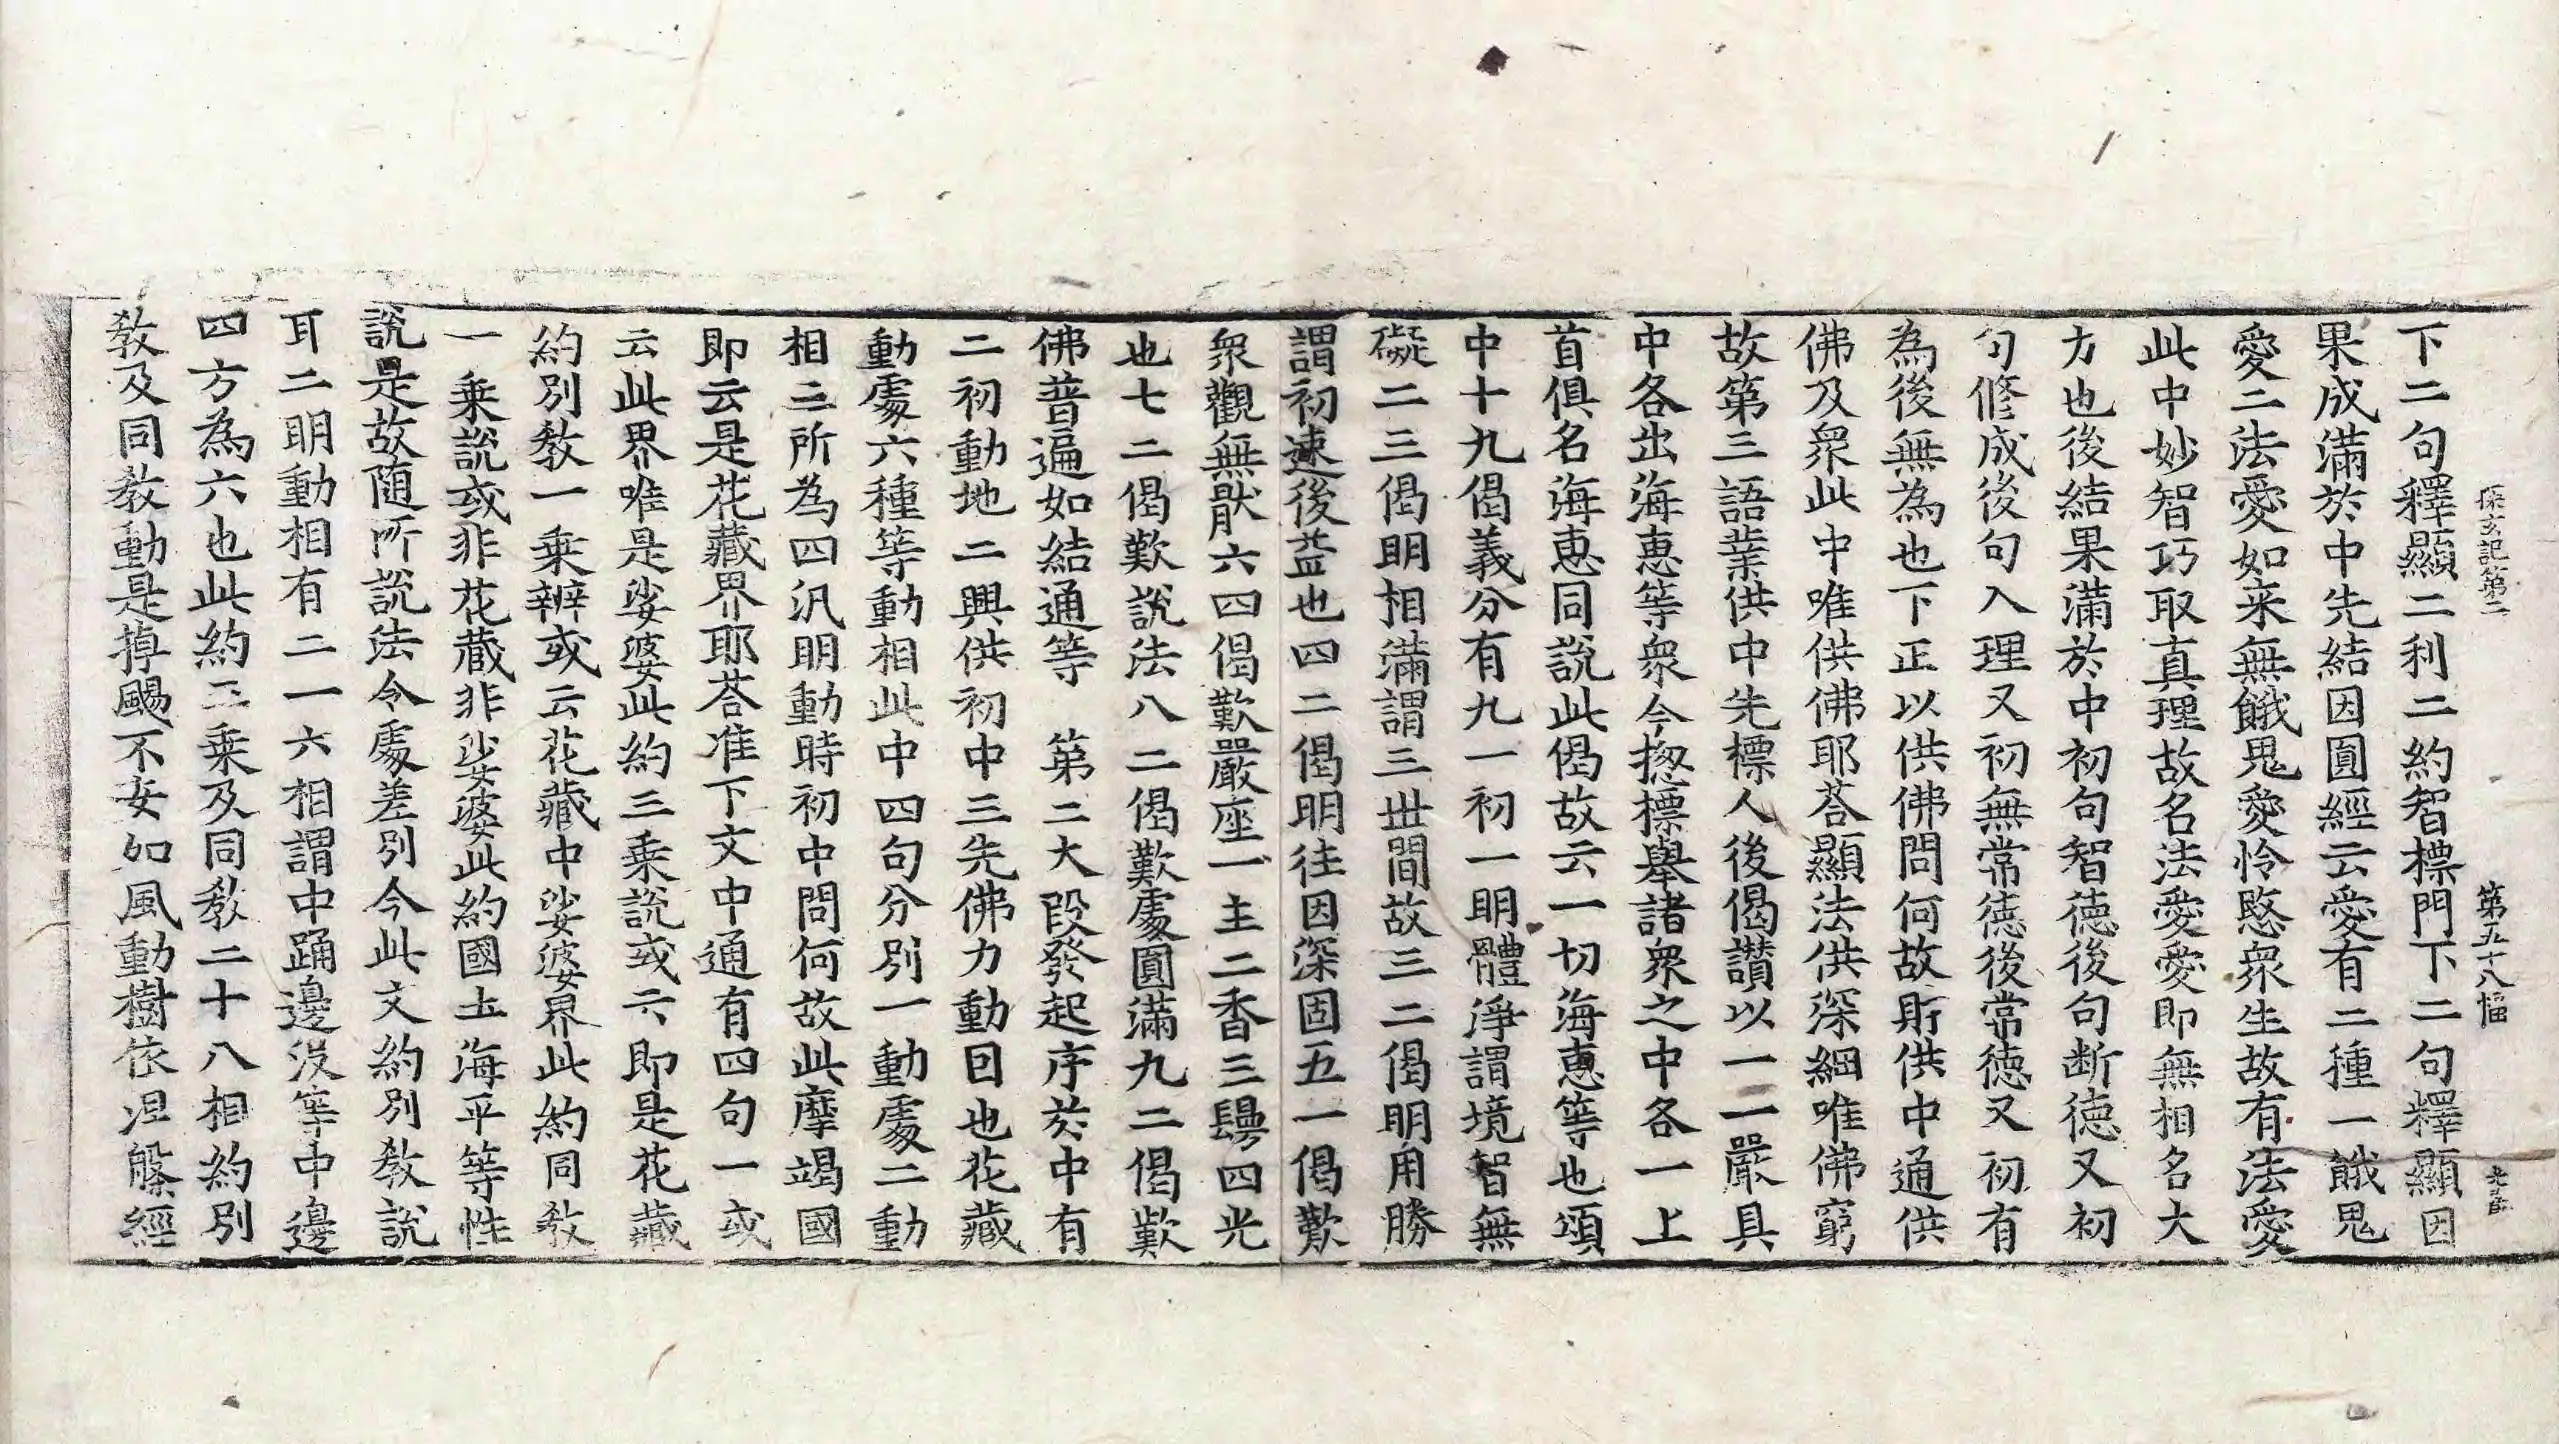 探玄記第二 第五十八幅
下二句釋顯二利二約智標門下二句釋顯因
果成滿於中先結因圓經云愛有二種一餓鬼
愛二法愛如来無餓鬼愛怜愍衆生故有法愛
此中妙智巧取真理故名法愛愛即無相名大
力也後結果滿於中初句智德後句断德又初
句修成後句入理又初無常德後常德又初有
為後無為也下正以供佛問何故所供中通供
佛及衆此中唯供佛耶荅顯法供深細唯佛窮
故第三語業供中先標人後偈讃以一一嚴具
中各出海惠等衆今揔標舉諸衆之中各一上
首俱名海惠同說此偈故云一切海惠等也頌
中十九偈義分有九一初一明體淨謂境智無
礙二三偈明相滿謂三世間故三二偈明用勝
謂初速後益也四二偈明往因深固五一偈歎
衆觀無猒六四偈歎嚴座一主二香三鬘四光
也七二偈歎說法八二偈歎處圓滿九二偈歎
佛普遍如結通等 第二大段發起序於中有
二初動地二興供初中三先佛力動目也花藏
動處六種等動相此中四句分別一動處二動
相三所為四汎明動時初中問何故此摩竭國
即云是花藏界耶荅准下文中通有四句一或
云此界唯是娑婆此約三乗說或云即是花藏
約別教一乗辨或云花藏中娑婆界此約同教
一乗說或非花藏非娑婆此約國土海平等性
說是故随所說法令處差別今此文約別教說
耳二明動相有二一六相謂中踊邊没等中邊
四方為六也此約三乗及同教二十八相約別
教及同教動是掉颺不安如風動樹依涅槃經